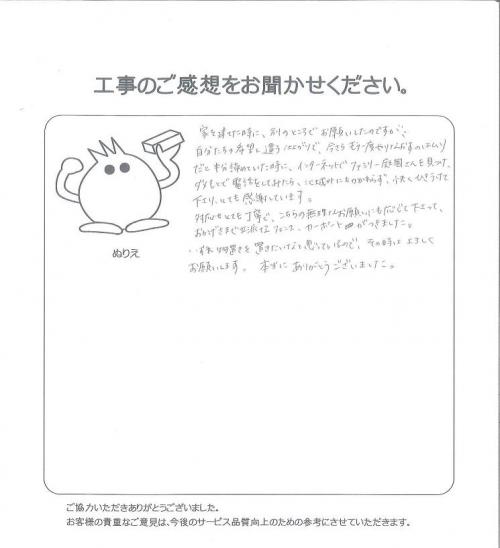 工事のご感想をお聞かせください。
家を建てた時に、別のところでお願いしたのですが、
自分たちの希望と違う仕上がりで、今さらもう一度やりなおすのはムリ
だと半分諦めていた時に、インターネットでファミリー庭園さんを見つけ、
ダメもとで電話をしてみたら、にもかかわらず、快くひきうけて
下さり、とても感謝しています。
対応もとても丁寧で、こちらの無理なお願いにも応じて下さって、
おかげさまで立派なフェンス、カーポートがつきました。
いずれ物置きを置きたいなと思っているので、その時はよろしく
お願いします。 本当にありがとうございました。
ぬりえ
ご協力いただきありがとうございました。
お客様の貴重なご意見は、今後のサービス品質向上のための参考にさせていただきます。